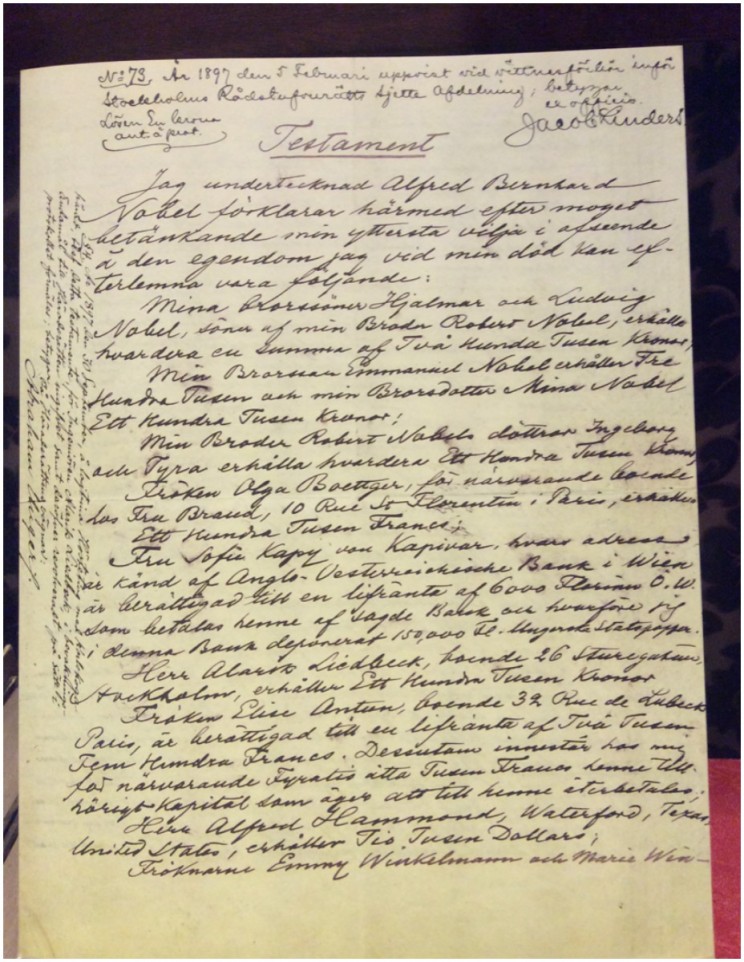 No 73, År 1897 den 5 Februari uppvist vid vittnesförhör inför
Stockholms Rådstufvurätts sjette Afdelning; betygar
Lösen En krona ex officio.
ant. å prot. Jacob Linders
Testament
Jag undertecknad Alfred Bernhard
Nobel förklarar härmed efter moget
betänkande min yttersta vilja i afseende
å den egendom jag vid min död kan ef-
terlemna vara följande:
Mina brorssöner Hjalmar och Ludvig
Nobel, söner af min Broder Robert Nobel, erhålla
hvardera en summa af Två Hundra Tusen Kronor;
Min Brorsson Emmanuel Nobel erhåller Tre
Hundra Tusen och min Brorsdotter Mina Nobel
Ett Hundra Tusen Kronor;
Min Broder Robert Nobels döttrar Ingeborg
och Tyra erhålla hvardera Ett Hundra Tusen Kronor
Fröken Olga Boettger, för närvarande boende
hos Fru Brand, 10 Rue St Florentin i Paris, erhåller
Ett Hundra Tusen Francs;
Fru Sofie Kapy von Kapivar, hvars adress
är känd af Anglo-Oesterreichische Bank i Wien
är berättigad till en lifränta af 6000 Florins Ö.W.
som betalas henne af sagde Bank och hvarföre jag
i denna Bank deponerat 150,000 Fl. i Ungerska Statspapper.
Herr Alarik Liedbeck, boende 26 Sturegatan,
Stockholm, erhåller Ett Hundra Tusen Kronor
Fröken Elise Antun, boende 32 Rue de Lubeck
Paris, är berättigad till en lifränta af Två Tusen
Fem Hundra Francs. Dessutom innestår hos mig
för närvarande Fyratio åtta Tusen Francs henne till-
hörigt Kapital som äger att till henne återbetalas;
Herr Alfred Hammond, Waterford, Texas,
United States, erhåller Tio Tusen Dollars;
Fröknarne Emmy Winkelmann och Marie Win-
År 1897 den